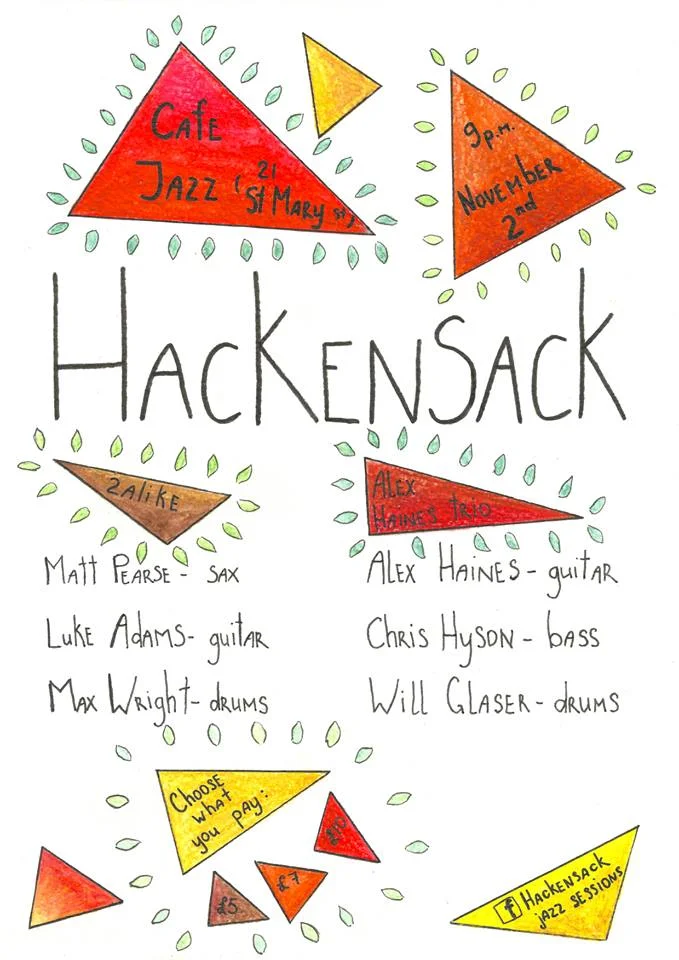 Cafe
Jazz (21
St Mary st)
9p.m.
November
2nd
Hackensack
2Alike
Alex
Haines trio
Matt Pearse - sax
Luke Adams - guitar
Max Wright - drums
Alex Haines - guitar
Chris Hyson - bass
Will Glaser - drums
Choose
what
you pay:
£10
£7
£5
f Hackensack
jazz sessions